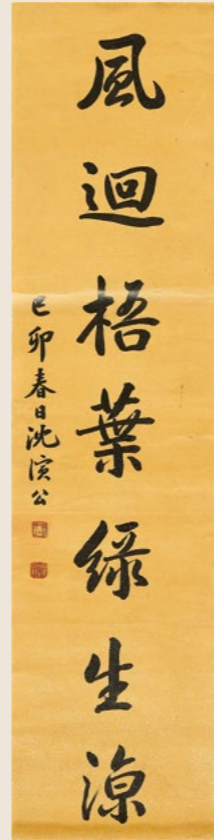 風迴梧葉綠生涼
己卯春日沈演公